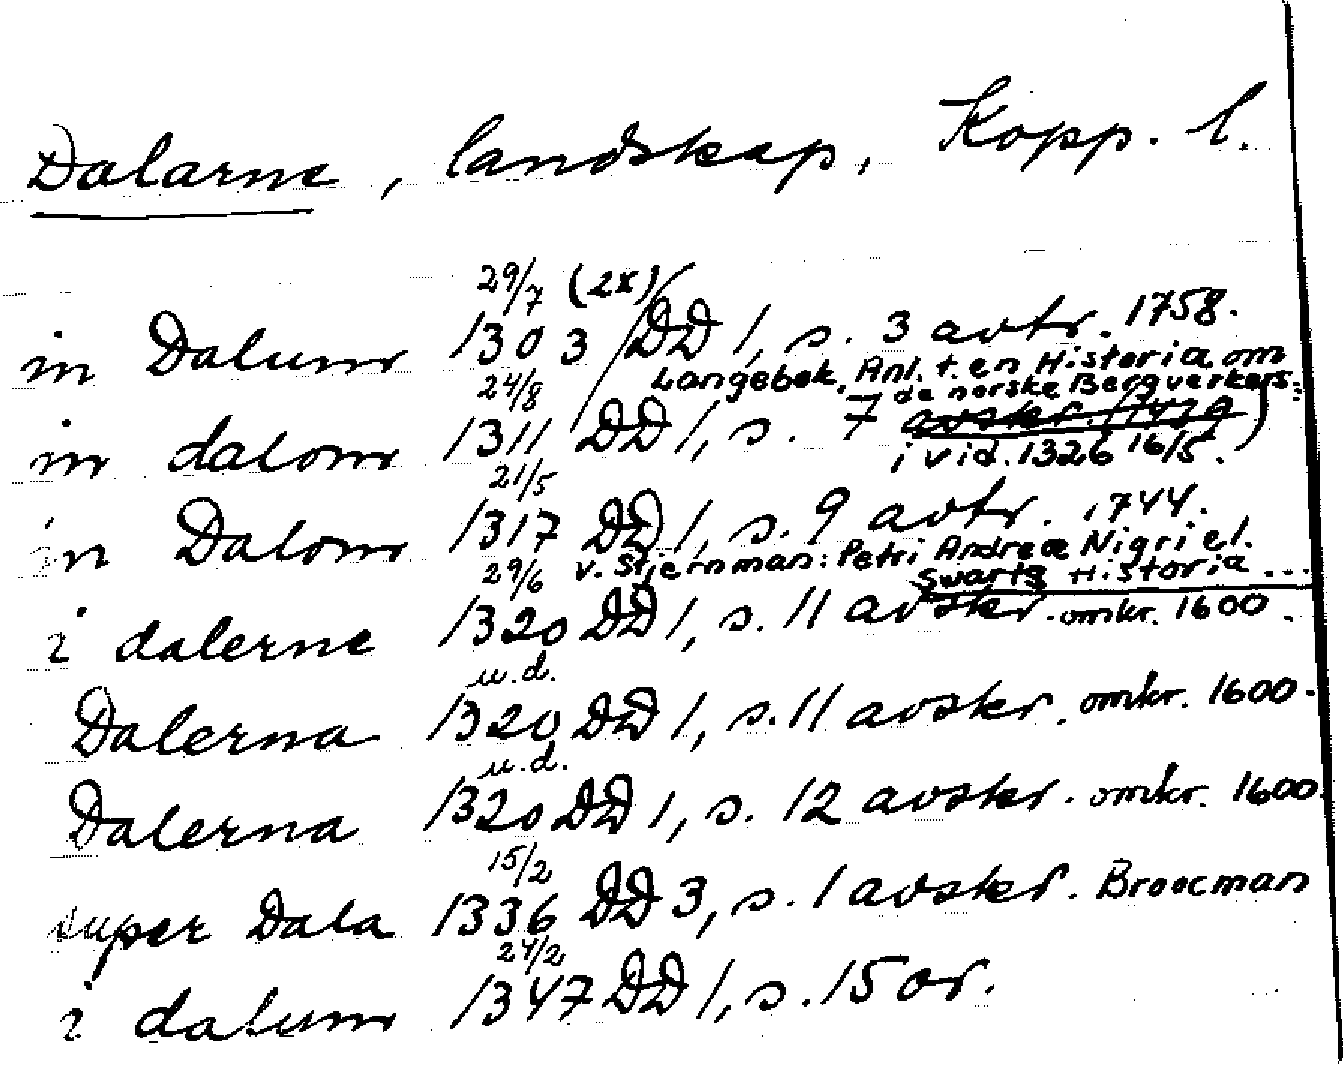 Dalarne, landskap, Kopp. l.
29/7 (2x)
in Dalum 1303 DD 1, s. 3 avtr. 1758.
Langebek, Anl. t. en Historia om
24/8 de norske Bergverkers.
in dalom 1311 DD 1, s. 7 avskr.
i vid. 1326 16/5.)
21/5
in Dalom 1317 DD 1, s. 9 avtr. 1744.
v. Stiernman: Petri Andreæ Nigri el.
29/6 Swarts Historia ...
i dalerne 1320 DD 1, s. 11 avskr. omkr. 1600.
u.d.
Dalerna 1320 DD 1, s. 11 avskr. omkr. 1600.
u.d.
Dalerna 1320 DD 1, s. 12 avskr. omkr. 1600.
15/2
super Dala 1336 DD 3, s. 1 avskr. Broocman
24/2
i dalum 1347 DD 1, s. 15 or.